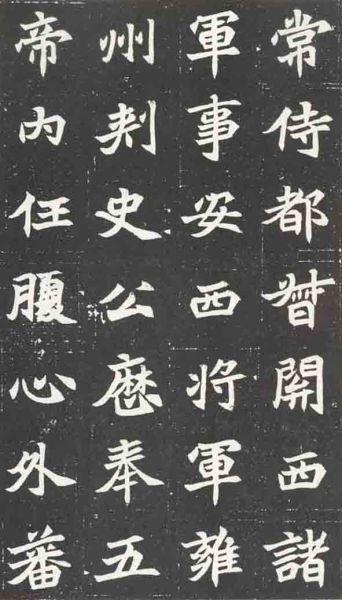 常侍都督開西諸
軍事安西将軍雍
州刾史公歴奉五
帝内任腹心外蕃